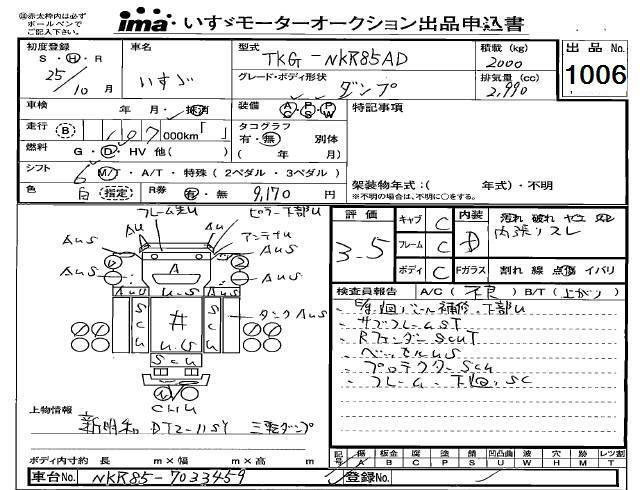 ㊟赤太枠内は必ず
ボールペンで
ご記入下さい。
ima いすゞモーターオークション出品申込書
初度登録 S・H・R 25/10月
車名 いすゞ
型式 TKG-NKR85AD
積載 (kg) 2000
出品No. 1006
グレード・ボディ形状 ダンプ
排気量 (cc) 2,990
車検 年 月・抹消
装備 AC PS PW
特記事項
走行 B 107 000km「 」
タコグラフ 有・無 別体
( 年 月)
燃料 G・D・HV 他( )
シフト 6 M/T・A/T・特殊 (2ペダル・3ペダル)
架装物年式:( 年式)・不明
※不明の場合は、不明に○をする。
色 白 (指定)
R券 有・無 9,170 円
評価 3.5
キャブ C
フレーム C
ボディ C
内装 D
汚れ 破れ ヤエ
内張りスレ
Fガラス 割れ 線 点傷 イバリ
フレーム
ピラー下部U
AU
AU
アンテナU
AUS
AUS
AUS
A
U-S
AUS
AUS
SCU
井
U-S
SCU
タンクAUS
SCU
CHU
検査員報告 A/C (不良) B/T (上がり)
サブフレームST
Rフェンダー SCUT
ベッセルUS
プロテクターSCU
フレーム、下回SC
上物情報
新明和 DT2-11SY 三転ダンプ
ボディ内寸約 長 m×幅 m×高 m
記号 傷A 板金B 腐C 塗P 錆S 凹凸曲U 波W 穴H 跡M レンズ割T
車台No. NKR85-7033459
登録No.